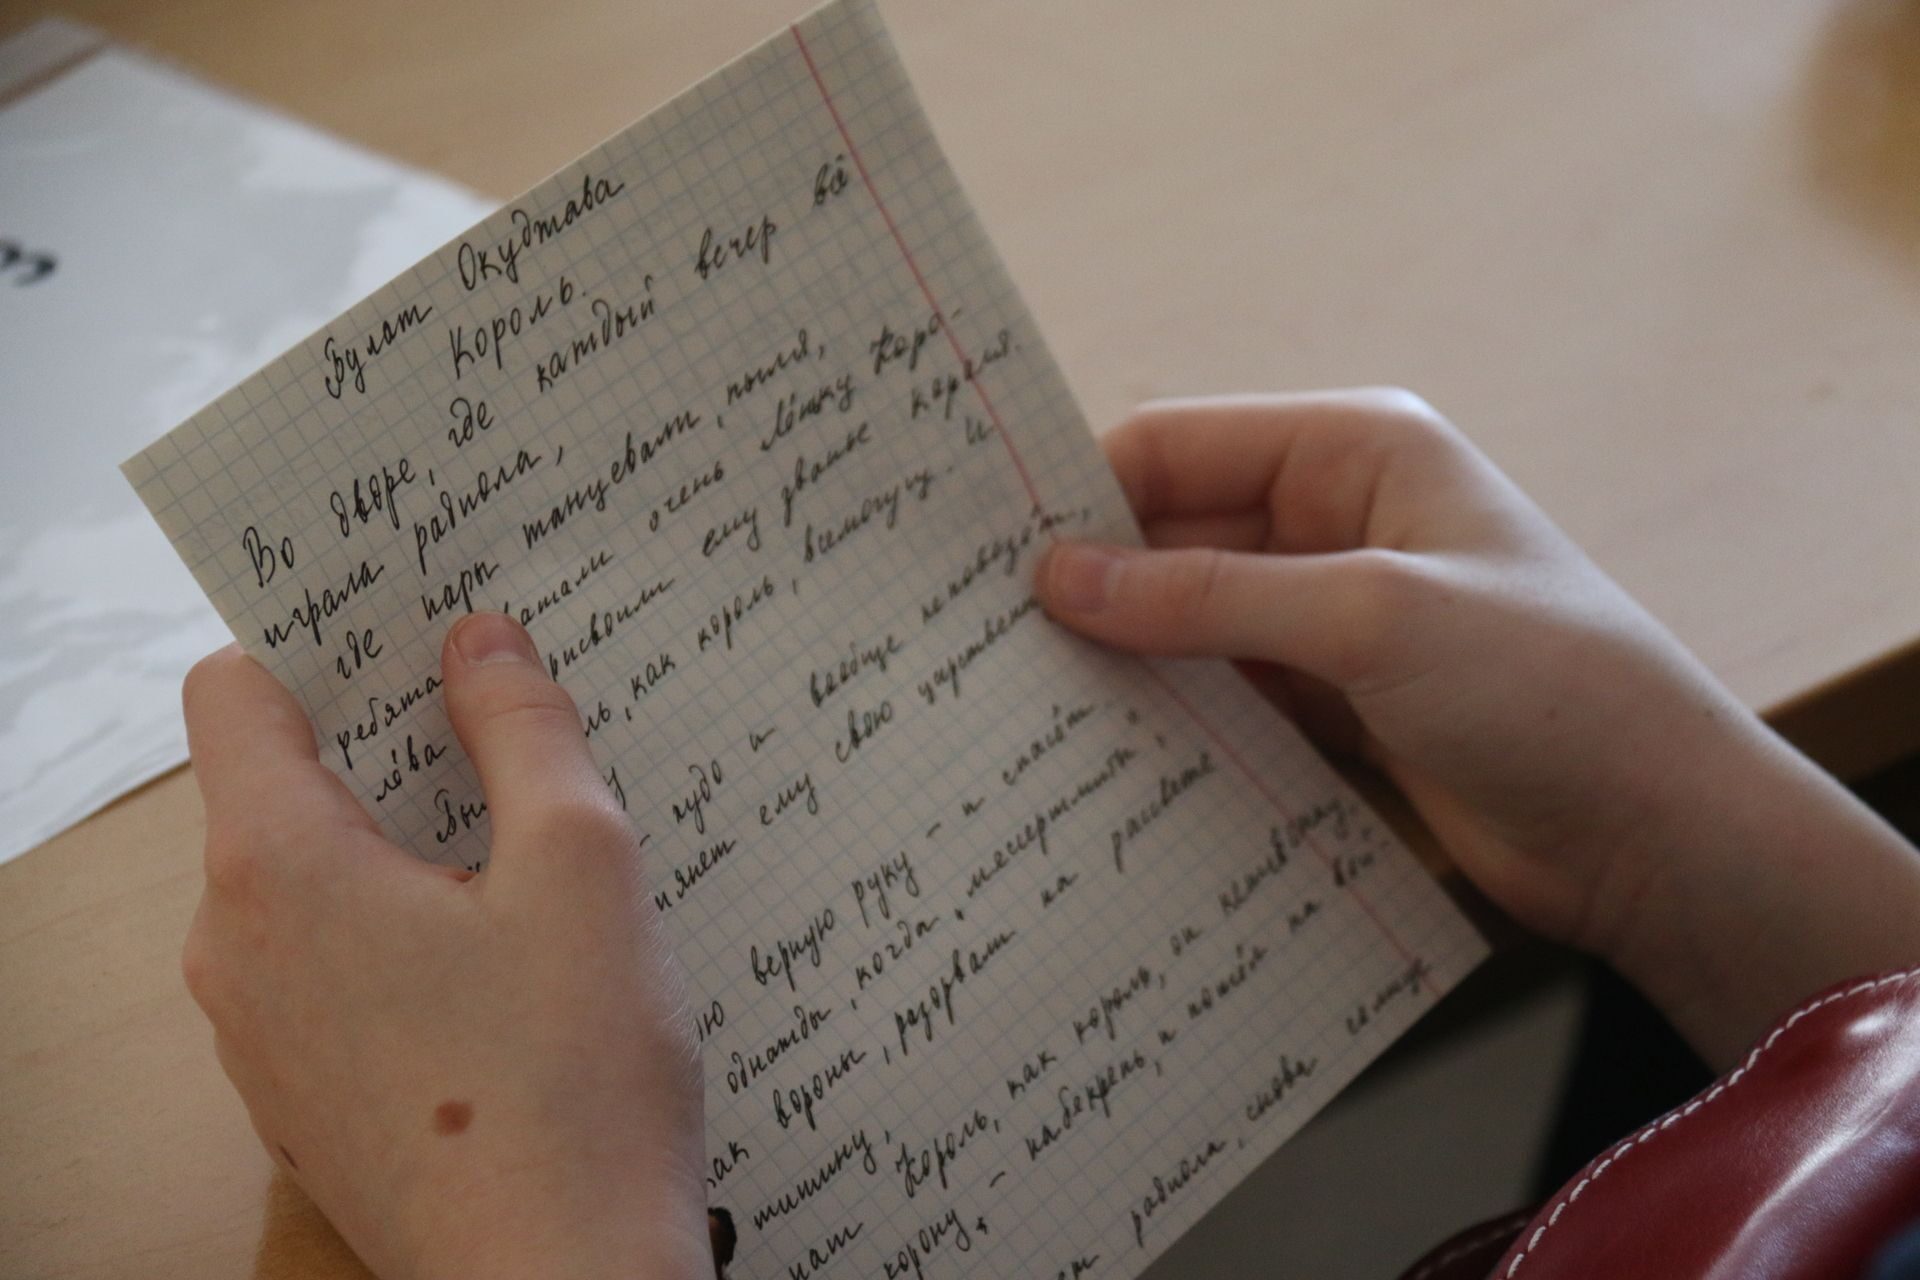 Булат Окуджава
Король.
Во дворе, где каждый вечер всё
играла радиола,
где пары танцевали, пыля,
ребята уважали очень Лёньку Коро-
лёва присвоили ему званье короля.
Был король, как король, всемогущ. И
худо и вообще не повезёт,
протянет ему свою царственную
свою верную руку - и спасёт.
однажды, когда "мессершмитты",
как вороны, разорвали на рассвете
тишину,
наш Король, как король, он кепчонку,
корону, - набекрень, и пошёл на вой-
радиола, снова солнце